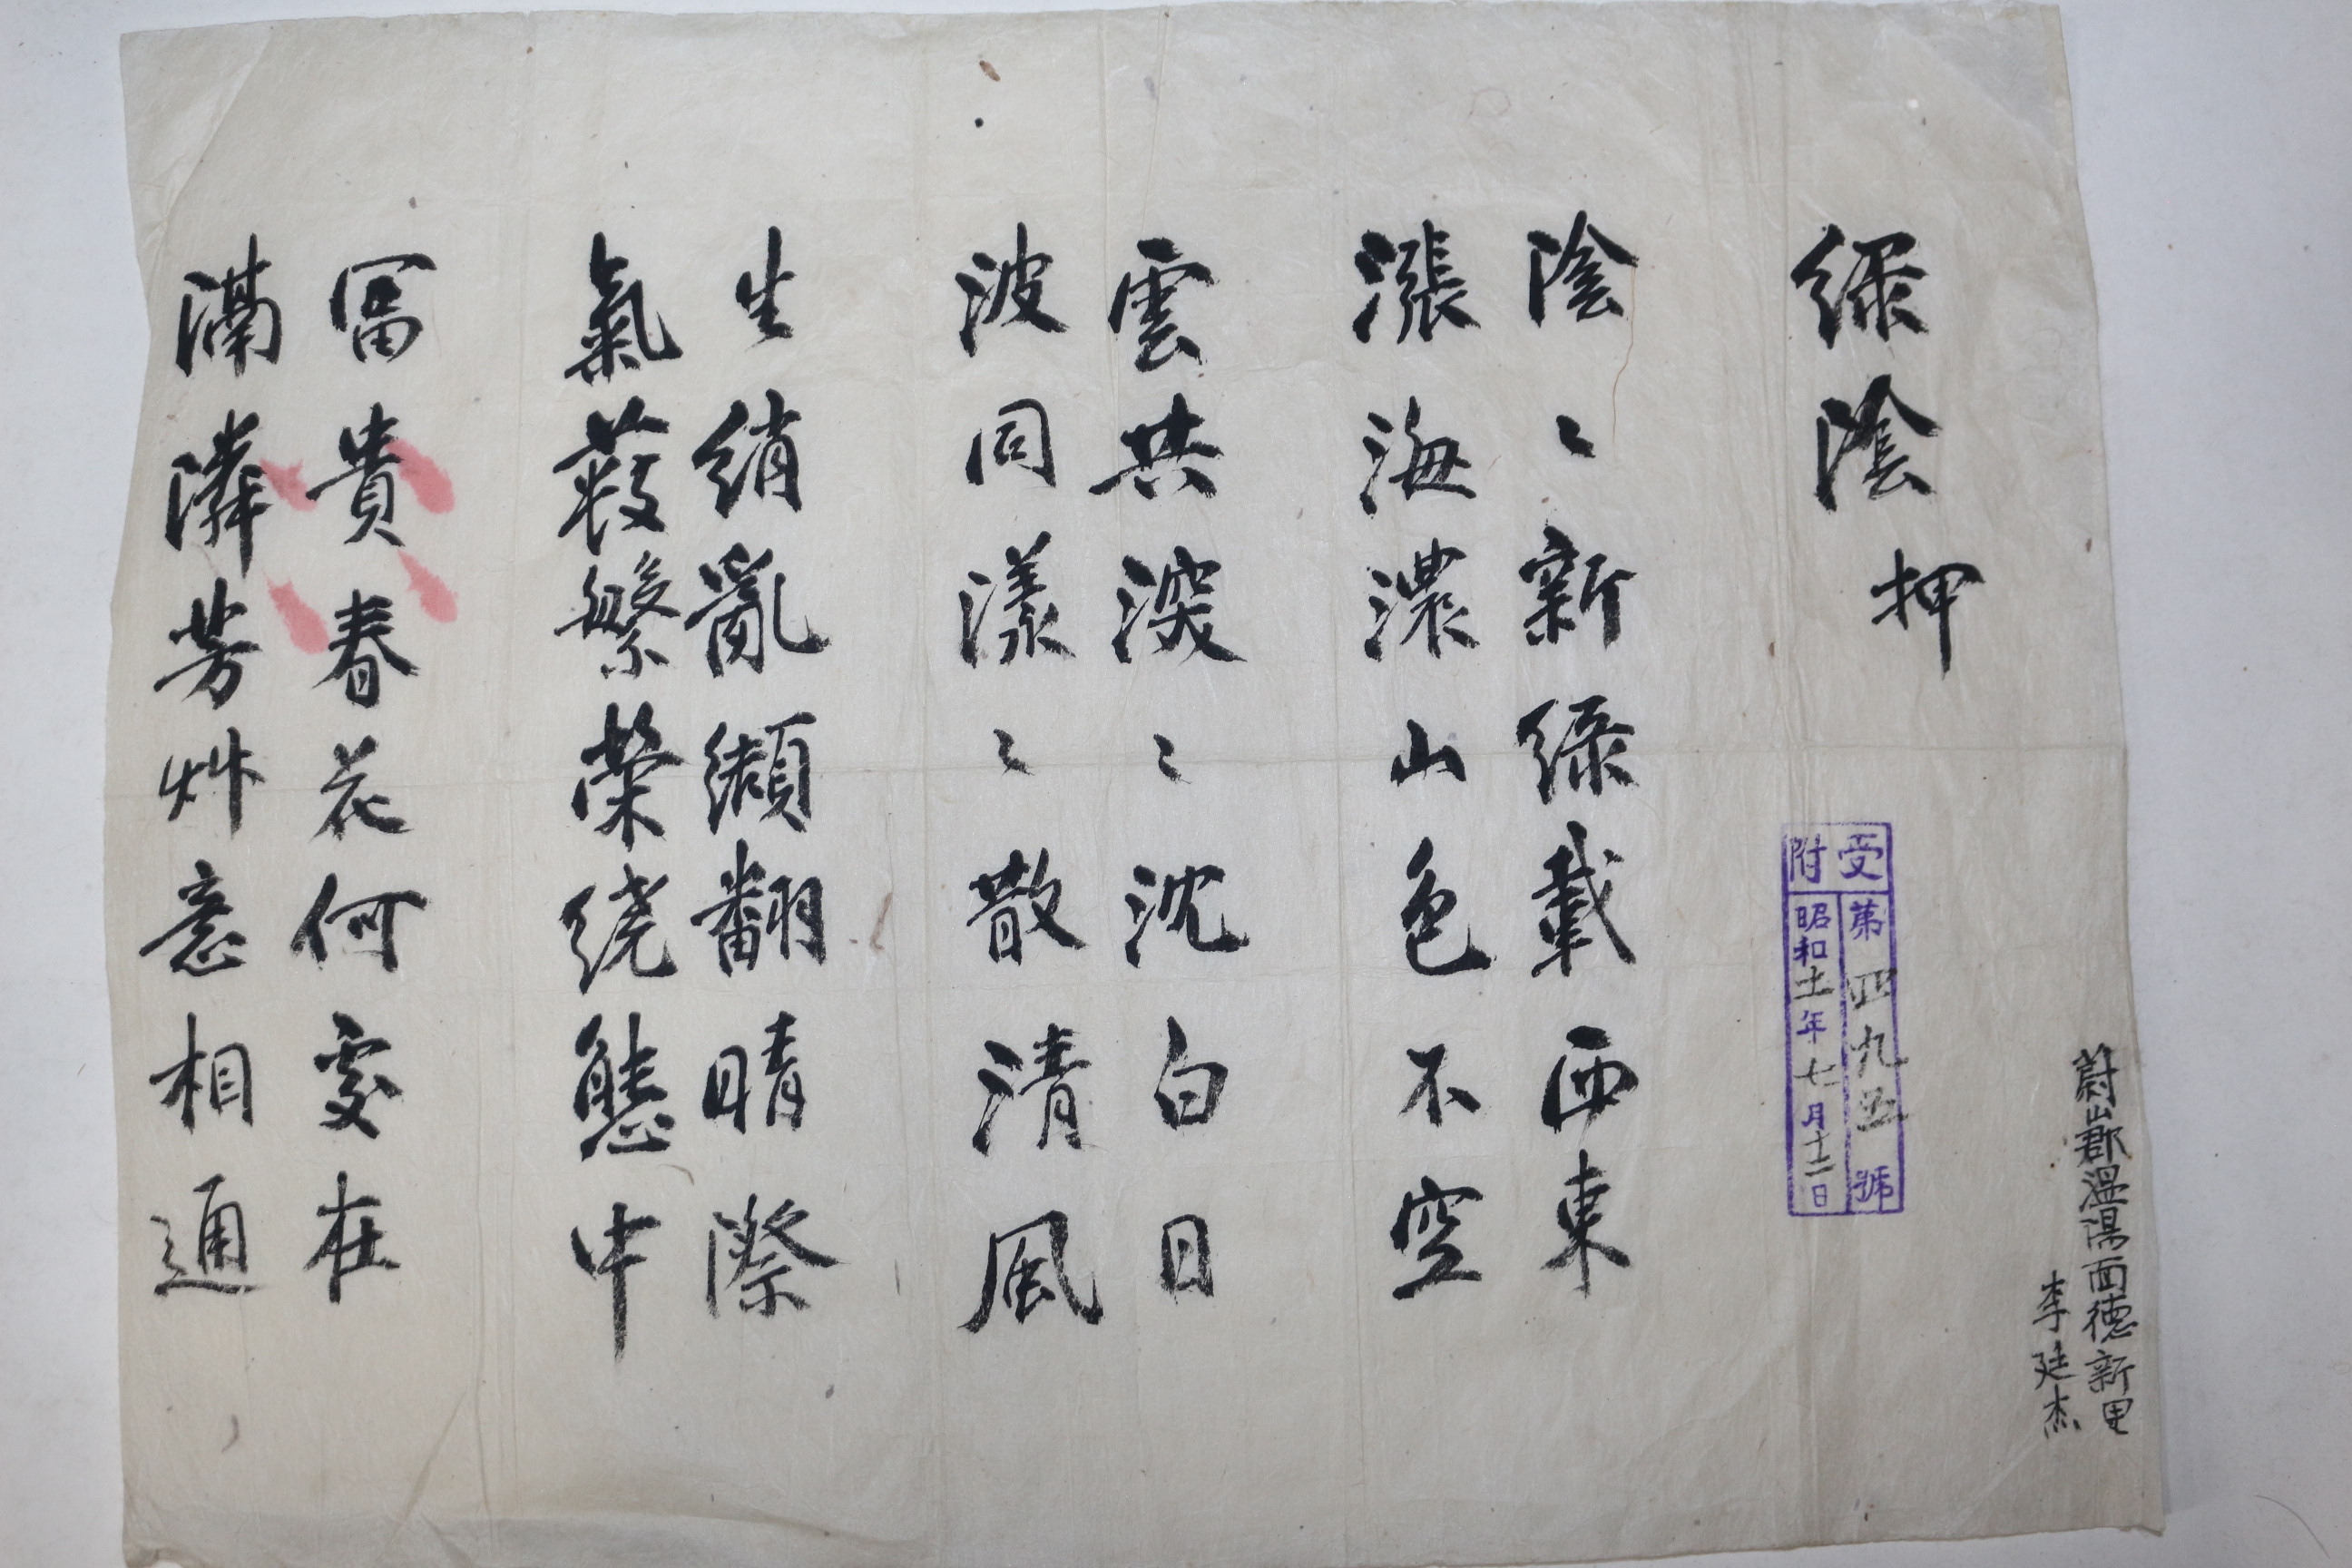 蔚山郡溫陽面德新里
李廷杰
綠陰 押
受附
第四九五號
昭和十一年七月十二日
陰〻新綠載西東
漲海濃山色不空
雲共深〻沈白日
波同漾〻散清風
生綃亂纈翻晴際
氣䕺繁榮繞態中
冨貴春花何處在
滿隣芳艸意相通